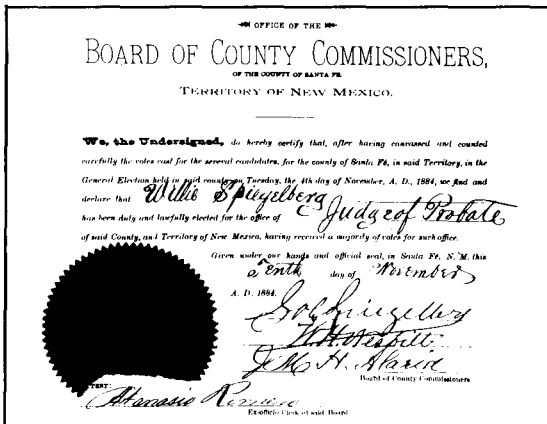 OFFICE OF THE
BOARD OF COUNTY COMMISSIONERS,
OF THE COUNTY OF SANTA FE.
TERRITORY OF NEW MEXICO.
We, the Undersigned, do hereby certify that, after having canvassed and counted
carefully the votes cast for the several candidates, for the county of Santa Fé, in said Territory, in the
General Election held in said county on Tuesday, the 4th day of November, A. D., 1884, we find and
declare that Willie Spiegelberg
has been duly and lawfully elected for the office of Judge of Probate
of said County, and Territory of New Mexico, having received a majority of votes for such office.
Given under our hands and official seal, in Santa Fé, N. M. this
Tenth day of November
A. D. 1884.
Sol Spiegelberg
W. H. Nesbitt
J M H. Alarid
Board of County Commissioners
Atanasio Romero
Ex-officio Clerk of said Board